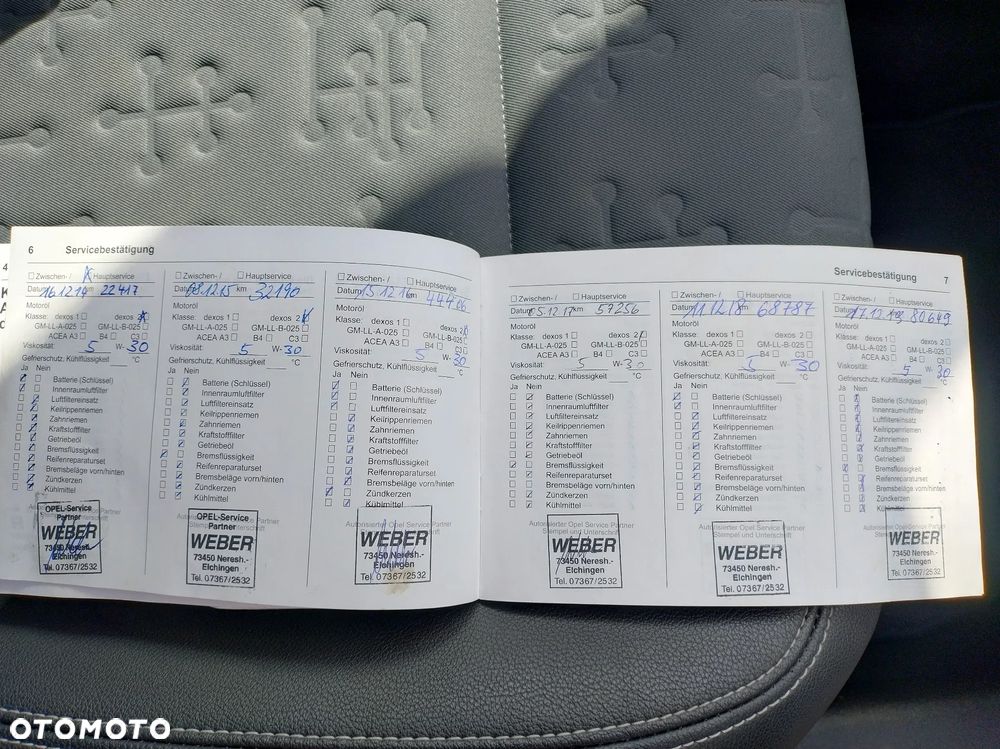 6 Servicebestätigung
Zwischen-/ Hauptservice
Datum 16.12.14 km 22417
Motoröl
Klasse: dexos 1 dexos 2
GM-LL-A-025 GM-LL-B-025
ACEA A3 B4 C3
Viskosität: 5 W- 30
Gefrierschutz, Kühlflüssigkeit °C
Ja Nein
Batterie (Schlüssel)
Innenraumluftfilter
Luftfiltereinsatz
Keilrippenriemen
Zahnriemen
Kraftstofffilter
Getriebeöl
Bremsflüssigkeit
Reifenreparaturset
Bremsbeläge vorn/hinten
Zündkerzen
Kühlmittel
OPEL-Service
Partner
WEBER
73450 Neresh.-
Elchingen
Tel. 07367/2532
Zwischen-/ Hauptservice
Datum 08.12.15 km 32190
Motoröl
Klasse: dexos 1 dexos 2
GM-LL-A-025 GM-LL-B-025
ACEA A3 B4 C3
Viskosität: 5 W- 30
Gefrierschutz, Kühlflüssigkeit °C
Ja Nein
Batterie (Schlüssel)
Innenraumluftfilter
Luftfiltereinsatz
Keilrippenriemen
Zahnriemen
Kraftstofffilter
Getriebeöl
Bremsflüssigkeit
Reifenreparaturset
Bremsbeläge vorn/hinten
Zündkerzen
Kühlmittel
OPEL-Service
Partner
WEBER
73450 Neresh.-
Elchingen
Tel. 07367/2532
Zwischen-/ Hauptservice
Datum 15.12.16 km 44406
Motoröl
Klasse: dexos 1 dexos 2
GM-LL-A-025 GM-LL-B-025
ACEA A3 B4 C3
Viskosität: 5 W- 30
Gefrierschutz, Kühlflüssigkeit °C
Ja Nein
Batterie (Schlüssel)
Innenraumluftfilter
Luftfiltereinsatz
Keilrippenriemen
Zahnriemen
Kraftstofffilter
Getriebeöl
Bremsflüssigkeit
Reifenreparaturset
Bremsbeläge vorn/hinten
Zündkerzen
Kühlmittel
Autorisierter Opel Service Partner
WEBER
73450 Neresh.-
Elchingen
Tel. 07367/2532
Servicebestätigung 7
Zwischen-/ Hauptservice
Datum 05.12.17 km 57256
Motoröl
Klasse: dexos 1 dexos 2
GM-LL-A-025 GM-LL-B-025
ACEA A3 B4 C3
Viskosität: 5 W- 30
Gefrierschutz, Kühlflüssigkeit °C
Ja Nein
Batterie (Schlüssel)
Innenraumluftfilter
Luftfiltereinsatz
Keilrippenriemen
Zahnriemen
Kraftstofffilter
Getriebeöl
Bremsflüssigkeit
Reifenreparaturset
Bremsbeläge vorn/hinten
Zündkerzen
Kühlmittel
Autorisierter Opel Service Partner
Stempel und Unterschrift
WEBER
73450 Neresh.-
Elchingen
Tel. 07367/2532
Zwischen-/ Hauptservice
Datum 11.12.18 km 68787
Motoröl
Klasse: dexos 1 dexos 2
GM-LL-A-025 GM-LL-B-025
ACEA A3 B4 C3
Viskosität: 5 W- 30
Gefrierschutz, Kühlflüssigkeit °C
Ja Nein
Batterie (Schlüssel)
Innenraumluftfilter
Luftfiltereinsatz
Keilrippenriemen
Zahnriemen
Kraftstofffilter
Getriebeöl
Bremsflüssigkeit
Reifenreparaturset
Bremsbeläge vorn/hinten
Zündkerzen
Kühlmittel
Autorisierter Opel Service Partner
Stempel und Unterschrift
WEBER
73450 Neresh.-
Elchingen
Tel. 07367/2532
Zwischen-/ Hauptservice
Datum 17.12.19 80649
Motoröl
Klasse: dexos 1 dexos 2
GM-LL-A-025 GM-LL-B-025
ACEA A3 B4 C3
Viskosität: 5 W- 30
Gefrierschutz, Kühlflüssigkeit °C
Ja Nein
Batterie (Schlüssel)
Innenraumluftfilter
Luftfiltereinsatz
Keilrippenriemen
Zahnriemen
Kraftstofffilter
Getriebeöl
Bremsflüssigkeit
Reifenreparaturset
Bremsbeläge vorn/hinten
Zündkerzen
Kühlmittel
Autorisierter Opel Service Partner
WEBER
73450 Neresh.-
Elchingen
Tel. 07367/2532
OTOMOTO